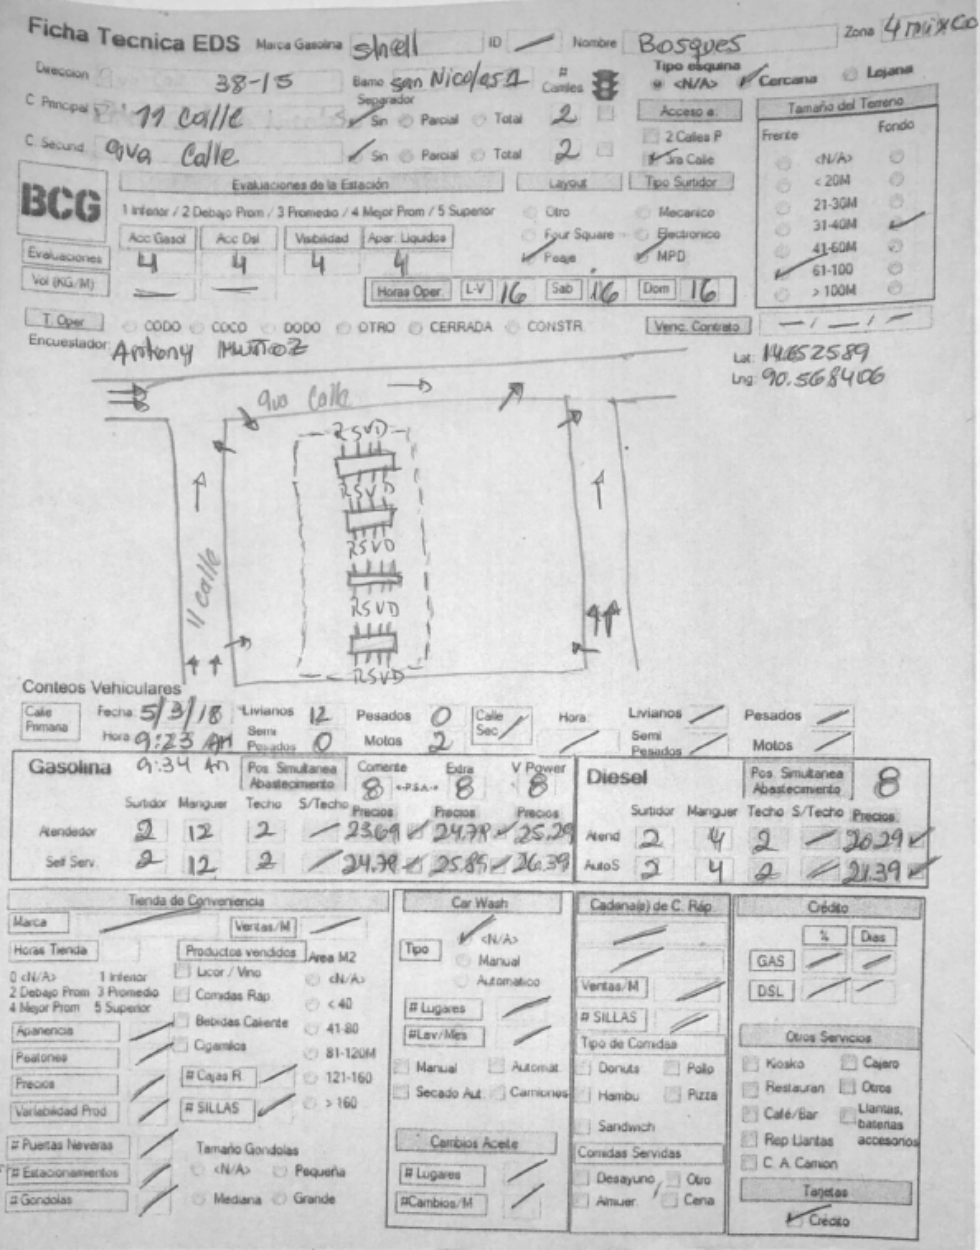 Ficha Tecnica EDS Marca Gasolina shell ID — Nombre Bosques Zona 4 mixco
Direccion 38-15 Barrio San Nicolas 1 # Carriles Tipo esquina <N/A> Cercana Lejana
C. Principal 11 calle Separador Sin Parcial Total 2 Acceso a: Tamaño del Terreno
2 Calles P Frente Fondo
C. Secund. 9va Calle Sin Parcial Total 2 3ra Calle <N/A>
BCG Evaluaciones de la Estación Layout Tipo Surtidor < 20M
1 Inferior / 2 Debajo Prom / 3 Promedio / 4 Mejor Prom / 5 Superior Otro Mecanico 21-30M
Acc Gasol Acc Dsl Visibilidad Apar. Liquidos Four Square Electronico 31-40M
Evaluaciones 4 4 4 4 Fosje MPD 41-60M
61-100
Vol (KG/M) — — Horas Oper. L-V 16 Sab 16 Dom 16 > 100M
T. Oper CODO COCO DODO OTRO CERRADA CONSTR. Venc. Contrato — / — / —
Encuestador: Antony Muñoz
Lat: 14.652589
Lng: 90.568406
9va Calle
RSVD
RSVD
RSVD
11 calle
RSVD
RSVD
Conteos Vehiculares
Calle Primaria Fecha 5/3/18 Livianos 12 Pesados 0 Calle Sec Hora: Livianos Pesados
Hora 9:23 AM Semi Pesados 0 Motos 2 Semi Pesados Motos
Gasolina 9:34 An Pos. Simultanea Abastecimiento Corriente 8 Extra 8 V Power 8 Diesel Pos. Simultanea Abastecimiento 8
Surtidor Manguer Techo S/Techo Precios Precios Precios Surtidor Manguer Techo S/Techo Precios
Atendedor 2 12 2 23.69 24.79 25.29 Atend 2 4 2 20.29
Self Serv. 2 12 2 24.79 25.89 26.39 AutoS 2 4 2 21.39
Tienda de Conveniencia Car Wash Cadena(e) de C. Ráp. Crédito
Marca Ventas/M <N/A> % Dias
Horas Tienda Productos vendidos Area M2 Tipo Manual GAS
0 <N/A> 1 Inferior Licor / Vino <N/A> Automatico Ventas/M DSL
2 Debajo Prom 3 Promedio Comidas Rap < 40
4 Mejor Prom 5 Superior # Lugares # SILLAS
Apariencia Bebidas Caliente 41-80 #Lav/Mes Tipo de Comidas Otros Servicios
Peatones Cigarrilos 81-120M Manual Automat. Donuts Pollo Kiosko Cajero
Precios # Cajas R. 121-160 Secado Aut. Camiones Hambu Pizza Restauran Otros
Variabilidad Prod # SILLAS > 160 Sandwich Café/Bar Llantas, baterias accesorios
# Puertas Neveras Tamaño Gondolas Cambios Aceite Comidas Servidas Rep Llantas
# Estacionamientos <N/A> Pequeña # Lugares Desayuno Otro C. A. Camion
# Gondolas Mediana Grande #Cambios/M Almuer Cena Tarjetas
Crédito